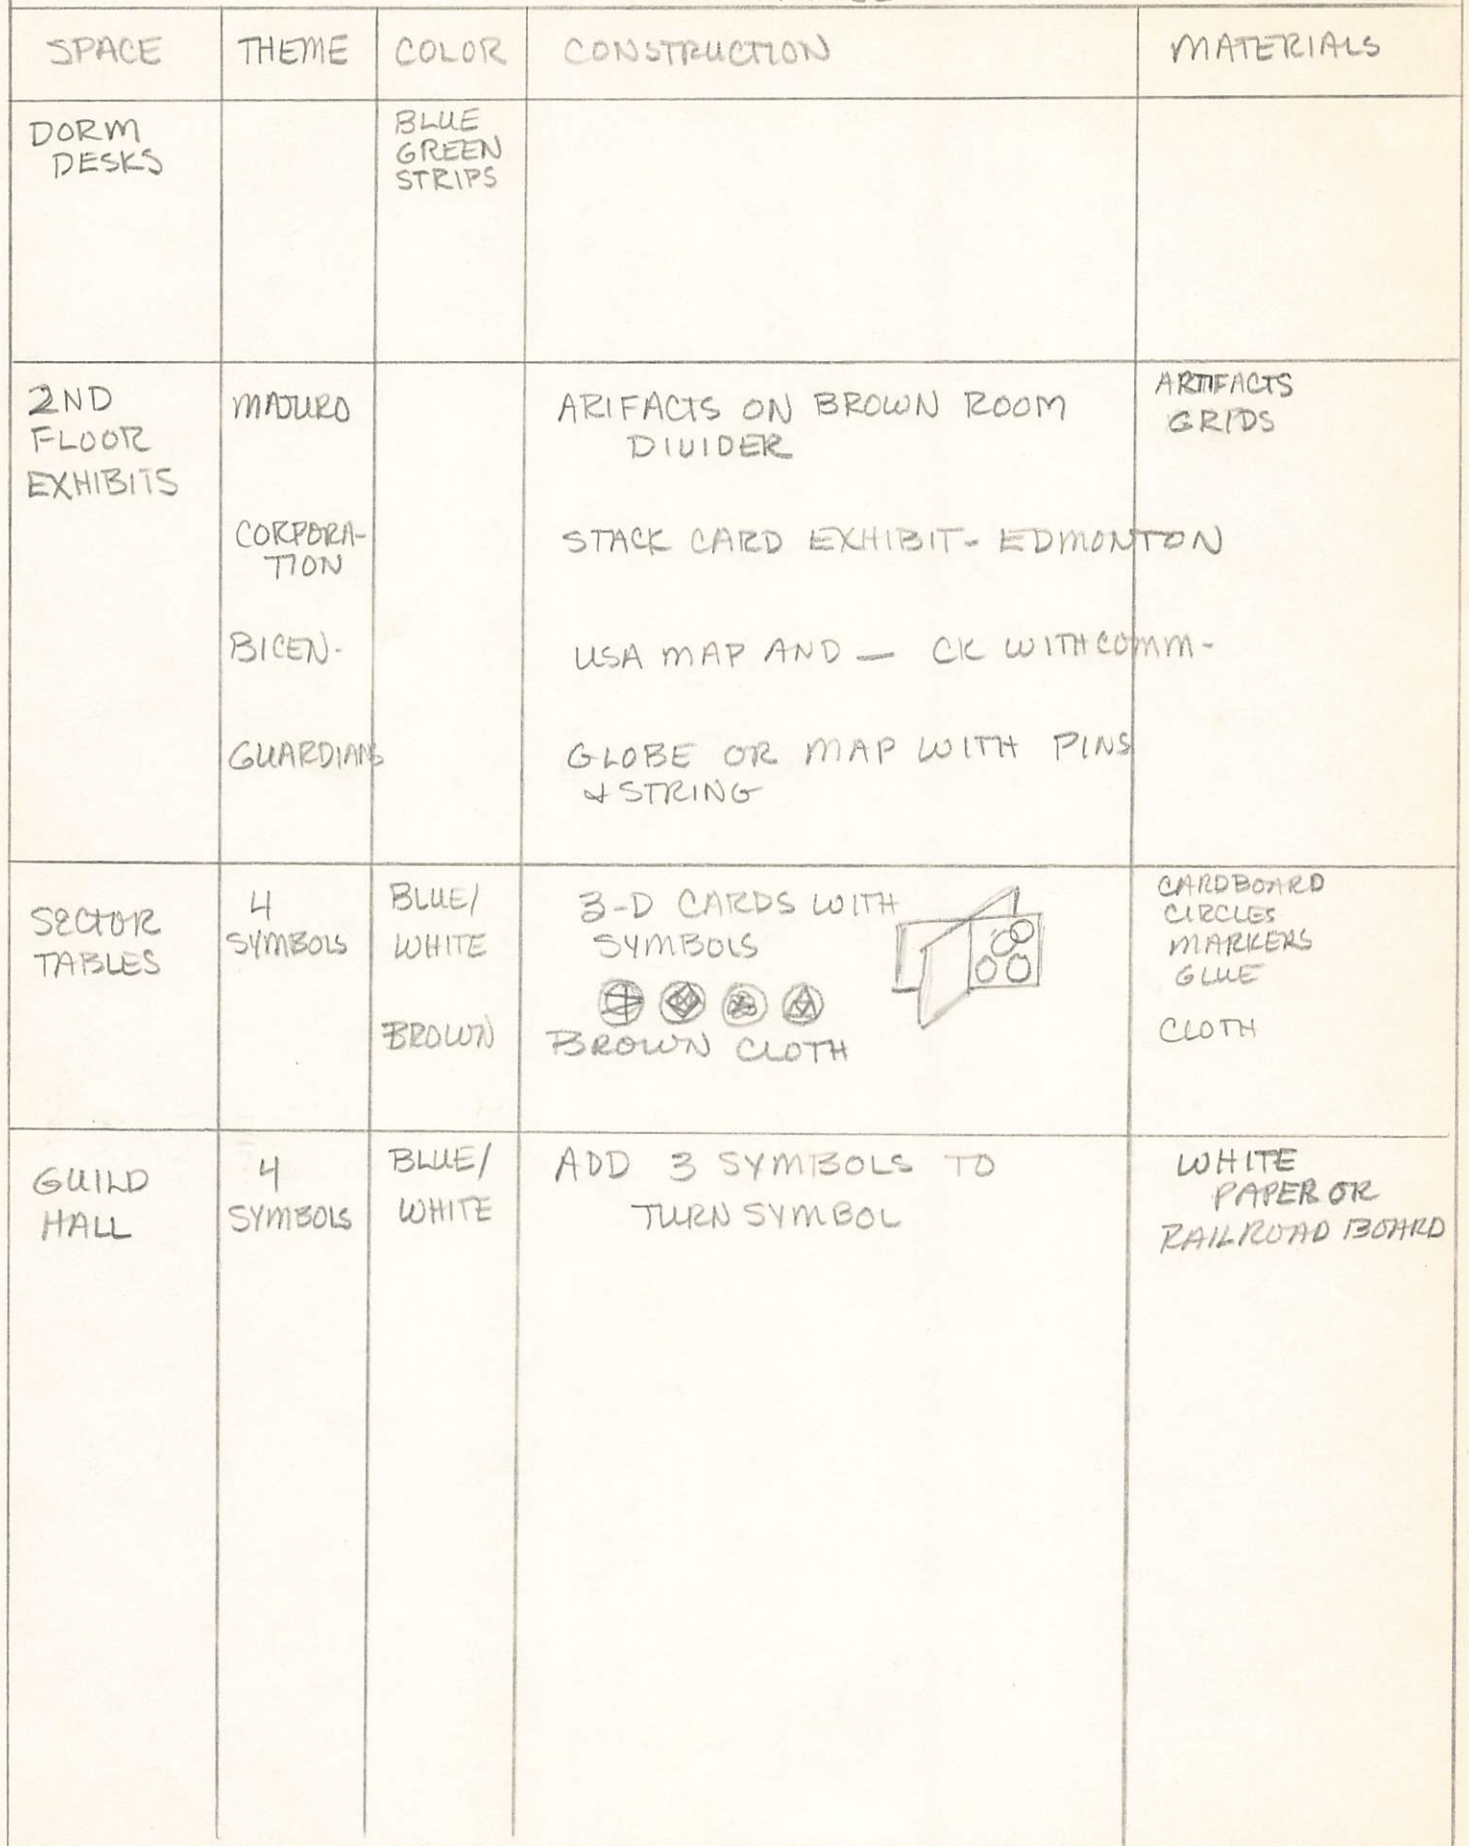 SPACE THEME COLOR CONSTRUCTION MATERIALS
DORM
DESKS
BLUE
GREEN
STRIPS
2ND
FLOOR
EXHIBITS
MAJURO
ARIFACTS ON BROWN ROOM
DIVIDER
ARTIFACTS
GRIDS
CORPORA-
TION
STACK CARD EXHIBIT - EDMONTON
BICEN-
USA MAP AND — CK WITH COMM-
GUARDIANS
GLOBE OR MAP WITH PINS
& STRING
SECTOR
TABLES
4
SYMBOLS
BLUE/
WHITE
BROWN
3-D CARDS WITH
SYMBOLS
BROWN CLOTH
CARDBOARD
CIRCLES
MARKERS
GLUE
CLOTH
GUILD
HALL
4
SYMBOLS
BLUE/
WHITE
ADD 3 SYMBOLS TO
TURN SYMBOL
WHITE
PAPER OR
RAILROAD BOARD